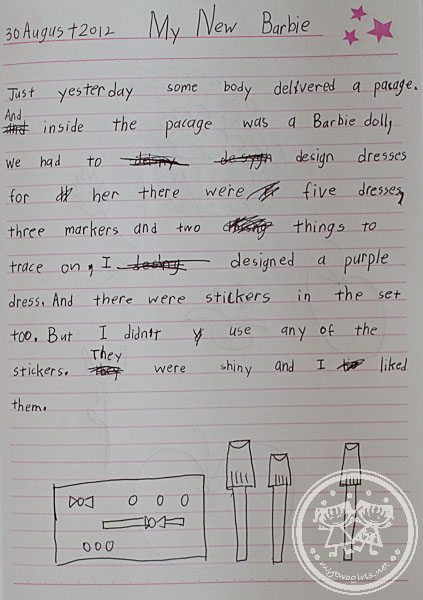 30 August 2012 My New Barbie
Just yesterday some body delivered a pacage.
And inside the pacage was a Barbie doll,
we had to design dresses
for her there were five dresses,
three markers and two things to
trace on, I designed a purple
dress. And there were stickers in the set
too. But I didn't use any of the
stickers. They were shiny and I liked
them.
mytwogirls.net